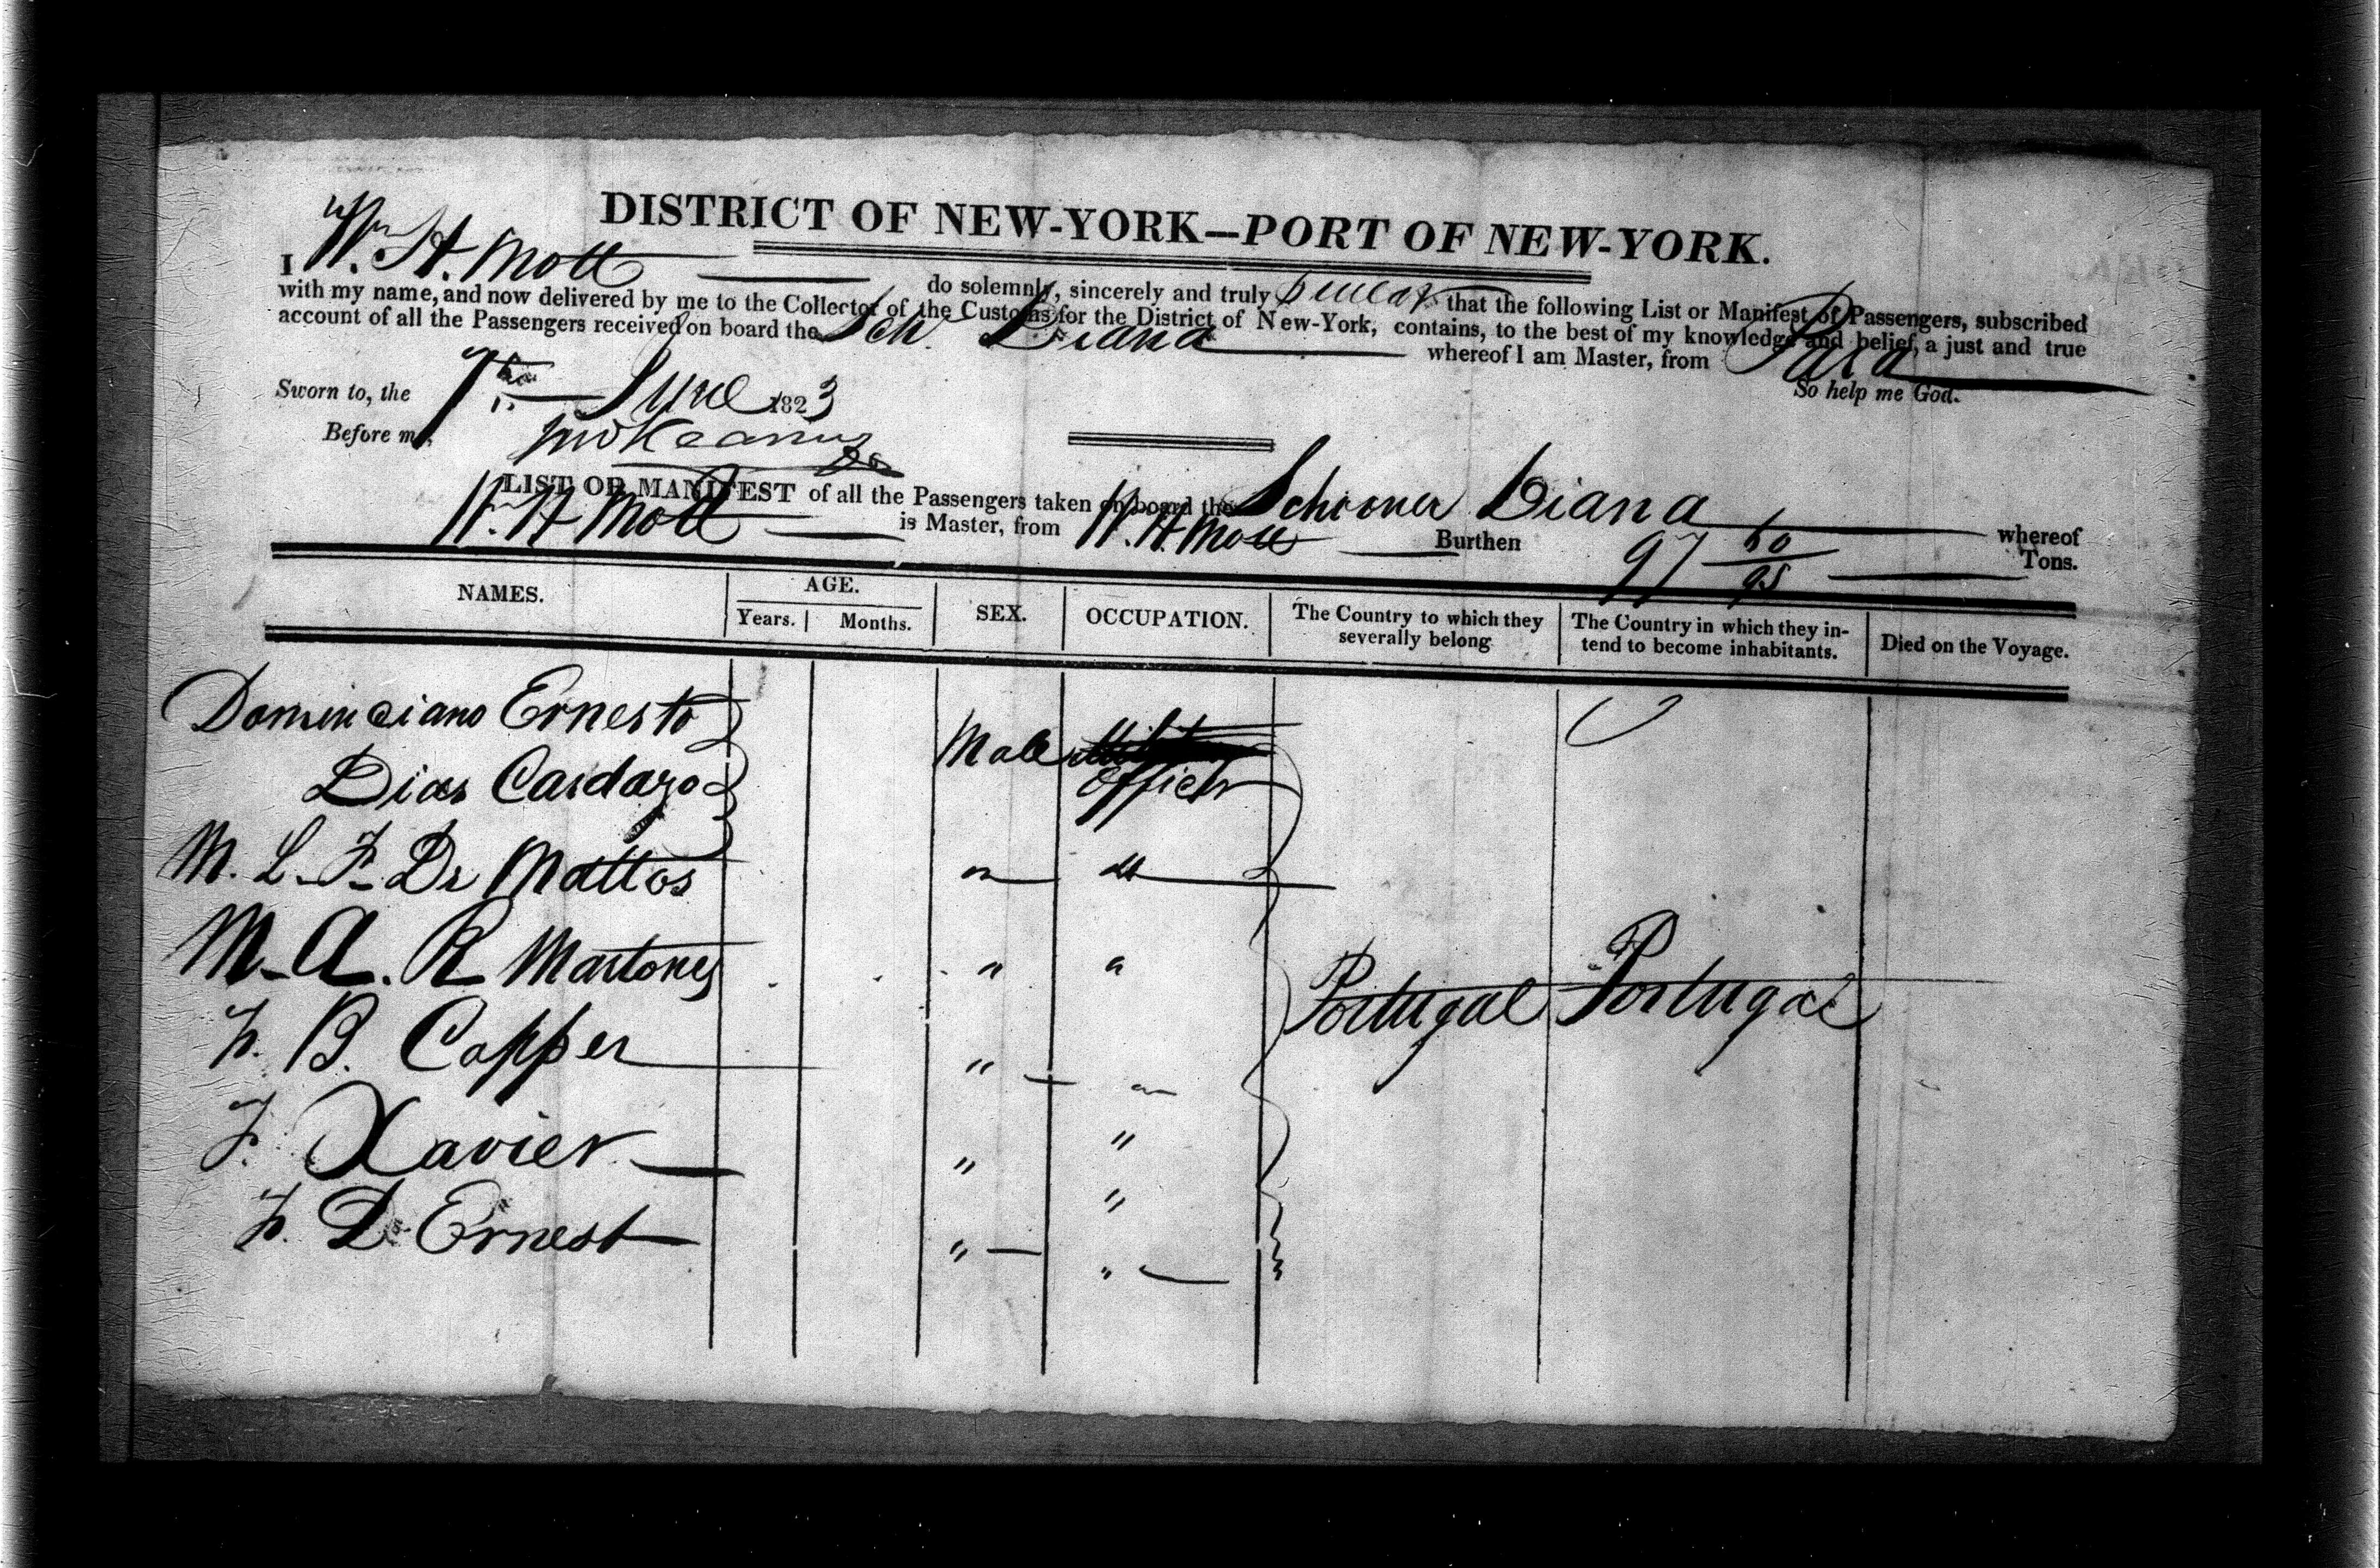 DISTRICT OF NEW-YORK—PORT OF NEW-YORK.
I Wm. H. Mott do solemnly, sincerely and truly swear that the following List or Manifest of Passengers, subscribed
with my name, and now delivered by me to the Collector of the Customs for the District of New-York, contains, to the best of my knowledge and belief, a just and true
account of all the Passengers received on board the Sch. Diana whereof I am Master, from Para
So help me God.
Sworn to, the 7th June 1823
Before me,
LIST OR MANIFEST of all the Passengers taken on board the Schooner Diana whereof
W. H. Mott is Master, from W. H. Mott Burthen 97 60/95 Tons.
NAMES. AGE. Years. Months. SEX. OCCUPATION. The Country to which they severally belong The Country in which they intend to become inhabitants. Died on the Voyage.
Dominciano Ernesto
Dias Cardazo Male officer
M. L. F. De Mattos do
M. A. R Martones " "
F. B. Copper "
F. Xavier " "
F. D. Ernest " "
"
Portugal Portugal